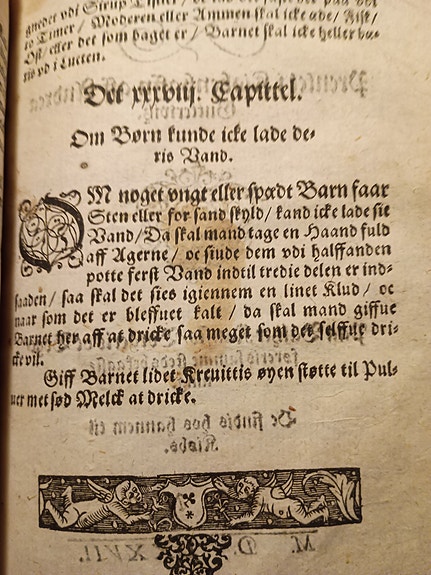 to Timer / Moderen eller Ammen skal icke æde / Fisk /
Ost / eller det som baget er / Barnet skal icke heller ba-
ris vd i Lucten.
Det xxxviij. Capittel.
Om Børn kunde icke lade de-
ris Vand.
OM noget vngt eller spædt Barn faar
Sten eller for sand skyld / kand icke lade sit
Vand / Da skal mand tage en Haand fuld
aff Agerne / oc siude dem vdi halffanden
potte ferst Vand indtil tredie delen er ind-
saaden / saa skal det sies igiennem en linet Klud / oc
naar som det er bleffuet kalt / da skal mand giffue
Barnet her aff at dricke saa meget som det selffue dri-
cke vil.
Giff Barnet lidet Kreuittis øyen støtte til Pul-
uer met sød Melck at dricke.